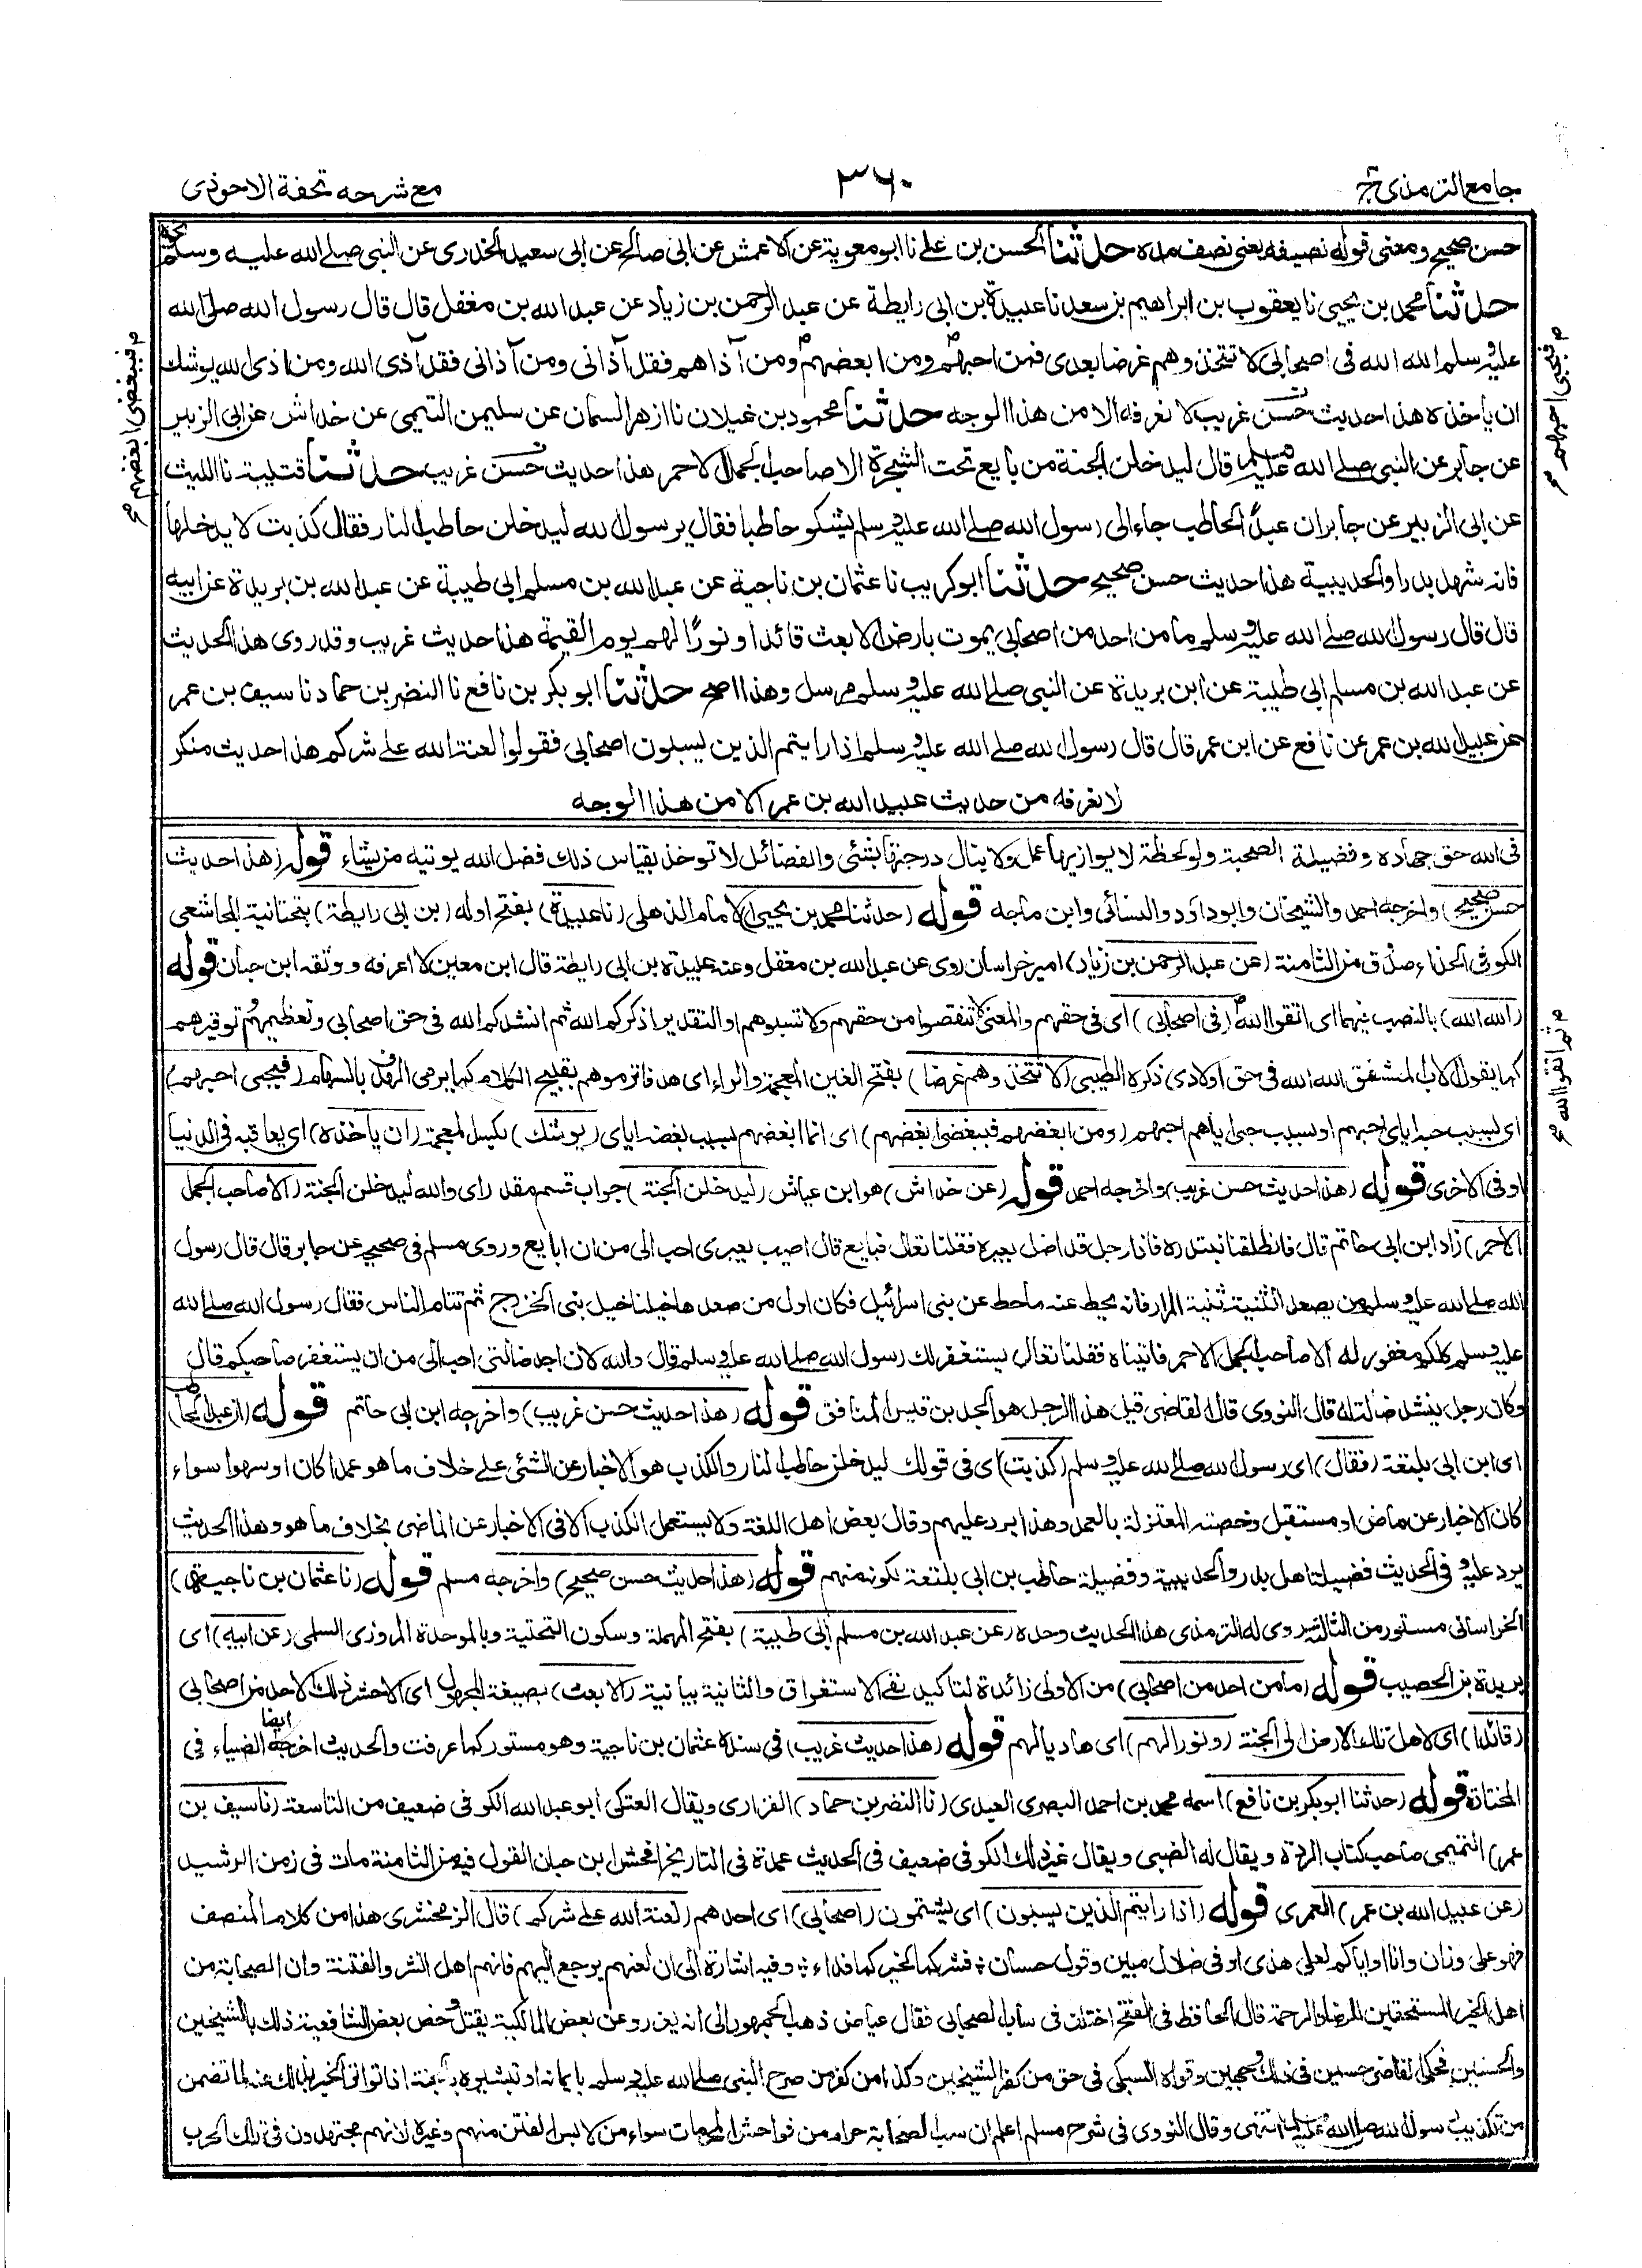 جامع الترمذی ج
۳۶۰
مع شرحه تحفة الاحوذی
حسن صحیح ومعنی قوله نصیفه یعنی نصف مده حدثنا الحسن بن علی نا ابو معویة عن الاعمش عن ابی صالح عن ابی سعید الخدری عن النبی صلی الله علیه وسلم نحوه
حدثنا محمد بن یحیی نا یعقوب بن ابراهیم بن سعد نا عبیدة بن ابی رابطة عن عبد الرحمن بن زیاد عن عبد الله بن مغفل قال قال رسول الله صلی الله
علیه وسلم الله الله فی اصحابی لا تتخذوهم غرضا بعدی فمن احبهم ومن ابغضهم ومن آذاهم فقد آذانی ومن آذانی فقد آذی الله ومن اذی الله یوشك
فبحبی احبهم
فببغضی ابغضهم
ان یأخذه هذا حدیث حسن غریب لا نعرفه الا من هذا الوجه حدثنا محمود بن غیلان نا ازهر السمان عن سلیمن التیمی عن خداش عن ابی الزبیر
عن جابر عن النبی صلی الله علیه وسلم قال لیدخلن الجنة من بایع تحت الشجرة الا صاحب الجمل الاحمر هذا حدیث حسن غریب حدثنا قتیبة نا اللیث
عن ابی الزبیر عن جابر ان عبد الحاطب جاء الی رسول الله صلی الله علیه وسلم یشکو حاطبا فقال یرسول الله لیدخلن حاطب النار فقال کذبت لا یدخلها
فانه شهد بدرا والحدیبیة هذا حدیث حسن صحیح حدثنا ابو کریب نا عثمان بن ناجیة عن عبد الله بن مسلم ابی طیبة عن عبد الله بن بریدة عن ابیه
قال قال رسول الله صلی الله علیه وسلم ما من احد من اصحابی یموت بارض الا بعث قائدا ونورًا لهم یوم القیمة هذا حدیث غریب وقد روی هذا الحدیث
عن عبد الله بن مسلم ابی طیبة عن ابن بریدة عن النبی صلی الله علیه وسلم مرسل وهذا اصح حدثنا ابو بکر بن نافع نا النضر بن حماد نا سیف بن عمر
عن عبید الله بن عمر عن نافع عن ابن عمر قال قال رسول الله صلی الله علیه وسلم اذا رایتم الذین یسبون اصحابی فقولوا لعنة الله علی شرکم هذا حدیث منکر
لا نعرفه من حدیث عبید الله بن عمر الا من هذا الوجه
فی الله حق جهاده وفضیلة الصحبة ولو لحظة لا یوازیها عمل ولا ینال درجتها بشئی والفضائل لا توخذ بقیاس ذلك فضل الله یوتیه من یشاء قوله (هذا حدیث
حسن صحیح) واخرجه احمد والشیخان وابوداؤد والنسائی وابن ماجه قوله (حدثنا محمد بن یحیی) الامام الذهلی (نا عبیدة) بفتح اوله (بن ابی رابطة) بتحتانیة المجاشعی
الکوفی الحذاء صدوق من الثامنة (عن عبد الرحمن بن زیاد) امیر خراسان روی عن عبد الله بن مغفل وعنه عبیدة بن ابی رابطة قال ابن معین لا اعرفه ووثقه ابن حبان قوله
(الله الله) بالنصب فیهما ای اتقوا الله (فی اصحابی) ای فی حقهم والمعنی لا تنقصوا من حقهم ولا تسبوهم او التقدیر اذکرکم الله ثم انشدکم الله فی حق اصحابی وتعظیمهم وتوقیرهم
ثم اتقوا الله
کما یقول الاب المشفق الله الله فی حق اولادی ذکره الطیبی (لا تتخذوهم غرضا) بفتح الغین المعجمة والراء ای هدفا ترموهم بقبیح الکلام کما یرمی الهدف بالسهام (فبحبی احبهم)
ای بسبب حبه ایای احبهم او بسبب حبی ایاهم احبهم (ومن ابغضهم فببغضی ابغضهم) ای انما ابغضهم بسبب بغضه ایای (یوشك) بکسر المعجمة (ان یاخذه) ای یعاقبه فی الدنیا
او فی الاخری قوله (هذا حدیث حسن غریب) واخرجه احمد قوله (عن خداش) هو ابن عیاش (لیدخلن الجنة) جواب قسم مقدر ای والله لیدخلن الجنة (الا صاحب الجمل
الاحمر) زاد ابن ابی حاتم قال فانطلقنا نبتدره فاذا رجل قد اضل بعیره فقلنا تعال فبایع قال اصیب بعیری احب الی من ان ابایع وروی مسلم فی صحیحه عن جابر قال قال رسول
الله صلی الله علیه وسلم من یصعد الثنیة ثنیة المرار فانه یحط عنه ما حط عن بنی اسرائیل فکان اول من صعدها خیلنا خیل بنی الخزرج ثم تتام الناس فقال رسول الله صلی الله
علیه وسلم کلکم مغفور له الا صاحب الجمل الاحمر فاتیناه فقلنا تعال یستغفر لك رسول الله صلی الله علیه وسلم قال والله لان اجد ضالتی احب الی من ان یستغفر صاحبکم قال
وکان رجل ینشد ضالة له قال النووی قال القاضی قیل هذا الرجل هو الجد بن قیس المنافق قوله (هذا حدیث حسن غریب) واخرجه ابن ابی حاتم قوله (ان عبد الحاطب)
ای ابن ابی بلتعة (فقال) ای رسول الله صلی الله علیه وسلم (کذبت) ای فی قولك لیدخلن حاطب النار والکذب هو الاخبار عن الشئی علی خلاف ما هو عمدا کان او سهوا سواء
کان الاخبار عن ماض او مستقبل وخصته المعتزلة بالعمد وهذا یرد علیهم وقال بعض اهل اللغة ولا یستعمل الکذب الا فی الاخبار عن الماضی بخلاف ما هو وهذا الحدیث
یرد علیه وفی الحدیث فضیلة اهل بدر والحدیبیة وفضیلة حاطب بن ابی بلتعة لکونه منهم قوله (هذا حدیث حسن صحیح) واخرجه مسلم قوله (نا عثمان بن ناجیة)
الخراسانی مستور من الثالثة روی له الترمذی هذا الحدیث وحده (عن عبد الله بن مسلم ابی طیبة) بفتح المهملة وسکون التحتیة وبالموحدة المروزی السلمی (عن ابیه) ای
بریدة بن الحصیب قوله (ما من احد من اصحابی) من الاولی زائدة لتاکید نفی الاستغراق والثانیة بیانیة (الا بعث) بصیغة المجهول ای الا حشر ذلك الاحد من اصحابی
(قائدا) ای لاهل تلك الارض الی الجنة (ونورا لهم) ای هادیا لهم قوله (هذا حدیث غریب) فی سنده عثمان بن ناجیة وهو مستور کما عرفت والحدیث اخرجه ایضا الضیاء فی
المختارة قوله (حدثنا ابو بکر بن نافع) اسمه محمد بن احمد البصری العبدی (نا النضر بن حماد) الفزاری ویقال العتکی ابو عبد الله الکوفی ضعیف من التاسعة (نا سیف بن
عمر) التمیمی صاحب کتاب الردة ویقال له الضبی ویقال غیر ذلك الکوفی ضعیف فی الحدیث عمدة فی التاریخ افحش ابن حبان القول فیه من الثامنة مات فی زمن الرشید
(عن عبید الله بن عمر) العمری قوله (اذا رایتم الذین یسبون) ای یشتمون (اصحابی) ای احدهم (لعنة الله علی شرکم) قال الزمخشری هذا من کلام المنصف
فهو علی وزان وانا او ایاکم لعلی هدی او فی ضلال مبین وقول حسان ؛ فشرکما لخیرکما فداء ؛ وفیه اشارة الی ان لعنهم یرجع الیهم فانهم اهل الشر والفتنة وان الصحابة من
اهل الخیر المستحقین للرضا والرحمة قال الحافظ فی الفتح اختلف فی ساب الصحابی فقال عیاض ذهب الجمهور الی انه یعزر وعن بعض المالکیة یقتل وخص بعض الشافعیة ذلك بالشیخین
والحسنین فحکی القاضی حسین فی ذلك وجهین وقواه السبکی فی حق من کفر الشیخین وکذا من کفر من صرح النبی صلی الله علیه وسلم بایمانه او تبشیره بالجنة اذا تواتر الخبر بذلك عنه لما تضمن
من تکذیب رسول الله صلی الله علیه وسلم انتهی وقال النووی فی شرح مسلم اعلم ان سب الصحابة حرام من فواحش المحرمات سواء من لابس الفتن منهم وغیره لانهم مجتهدون فی تلك الحرب